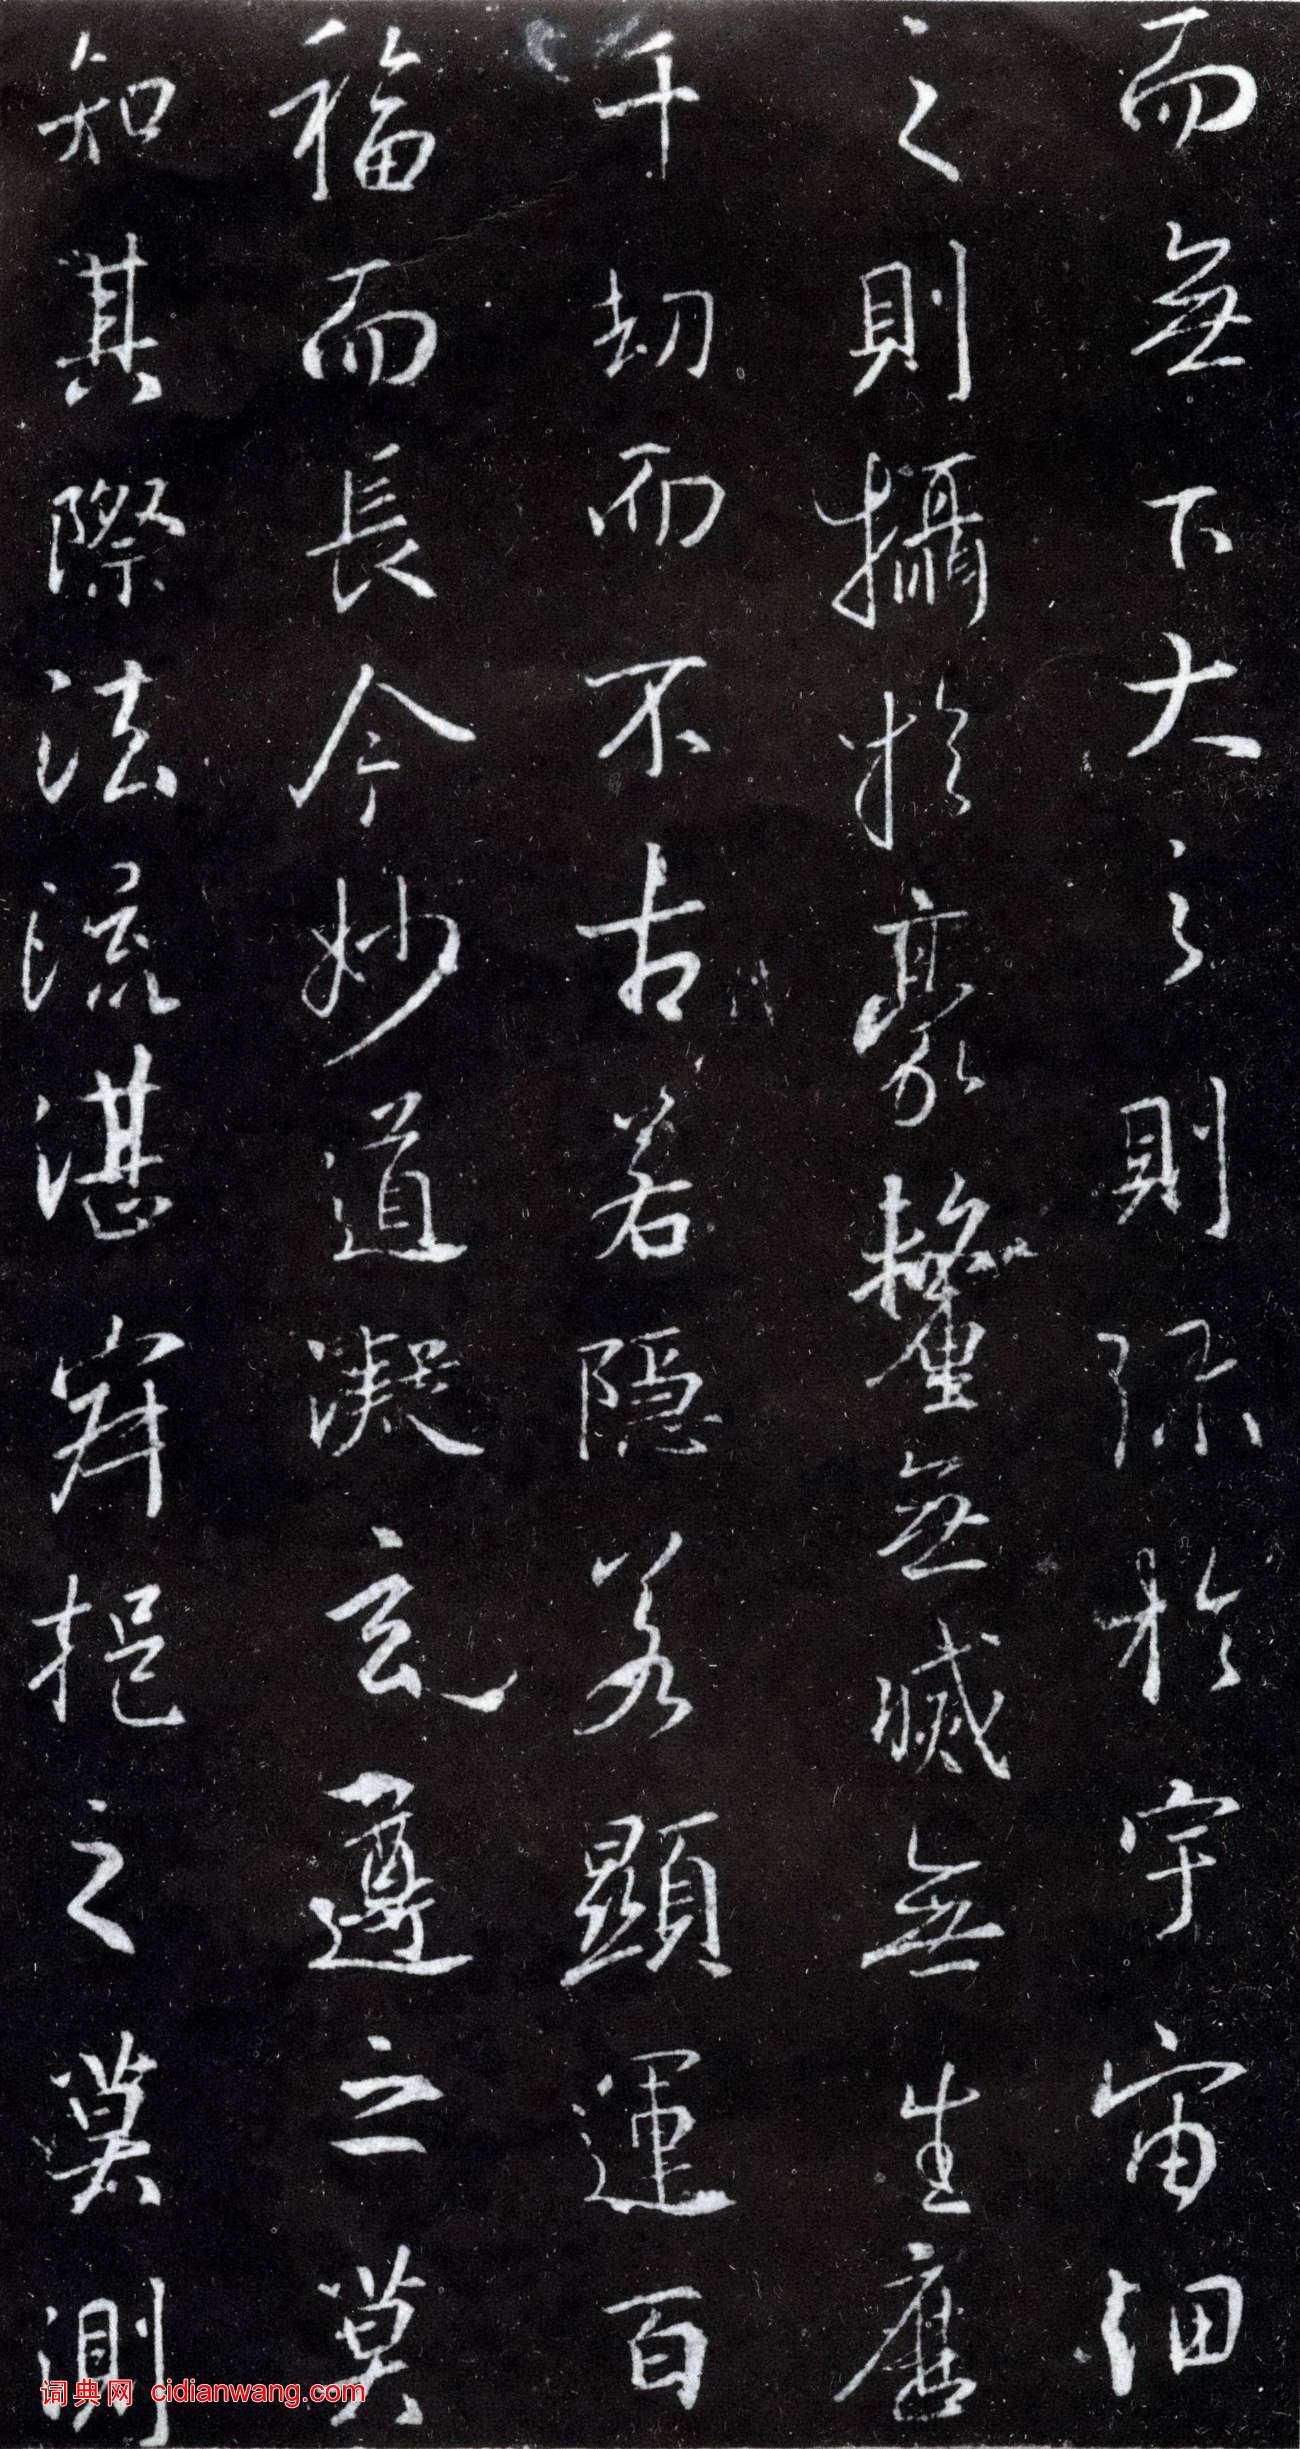 而無下大之則弥於宇宙細
之則攝於豪釐無滅無生歷
千劫而不古若隱若顯運百
福而長今妙道凝玄遵之莫
知其際法流湛寂挹之莫測
词典网 cidianwang.com